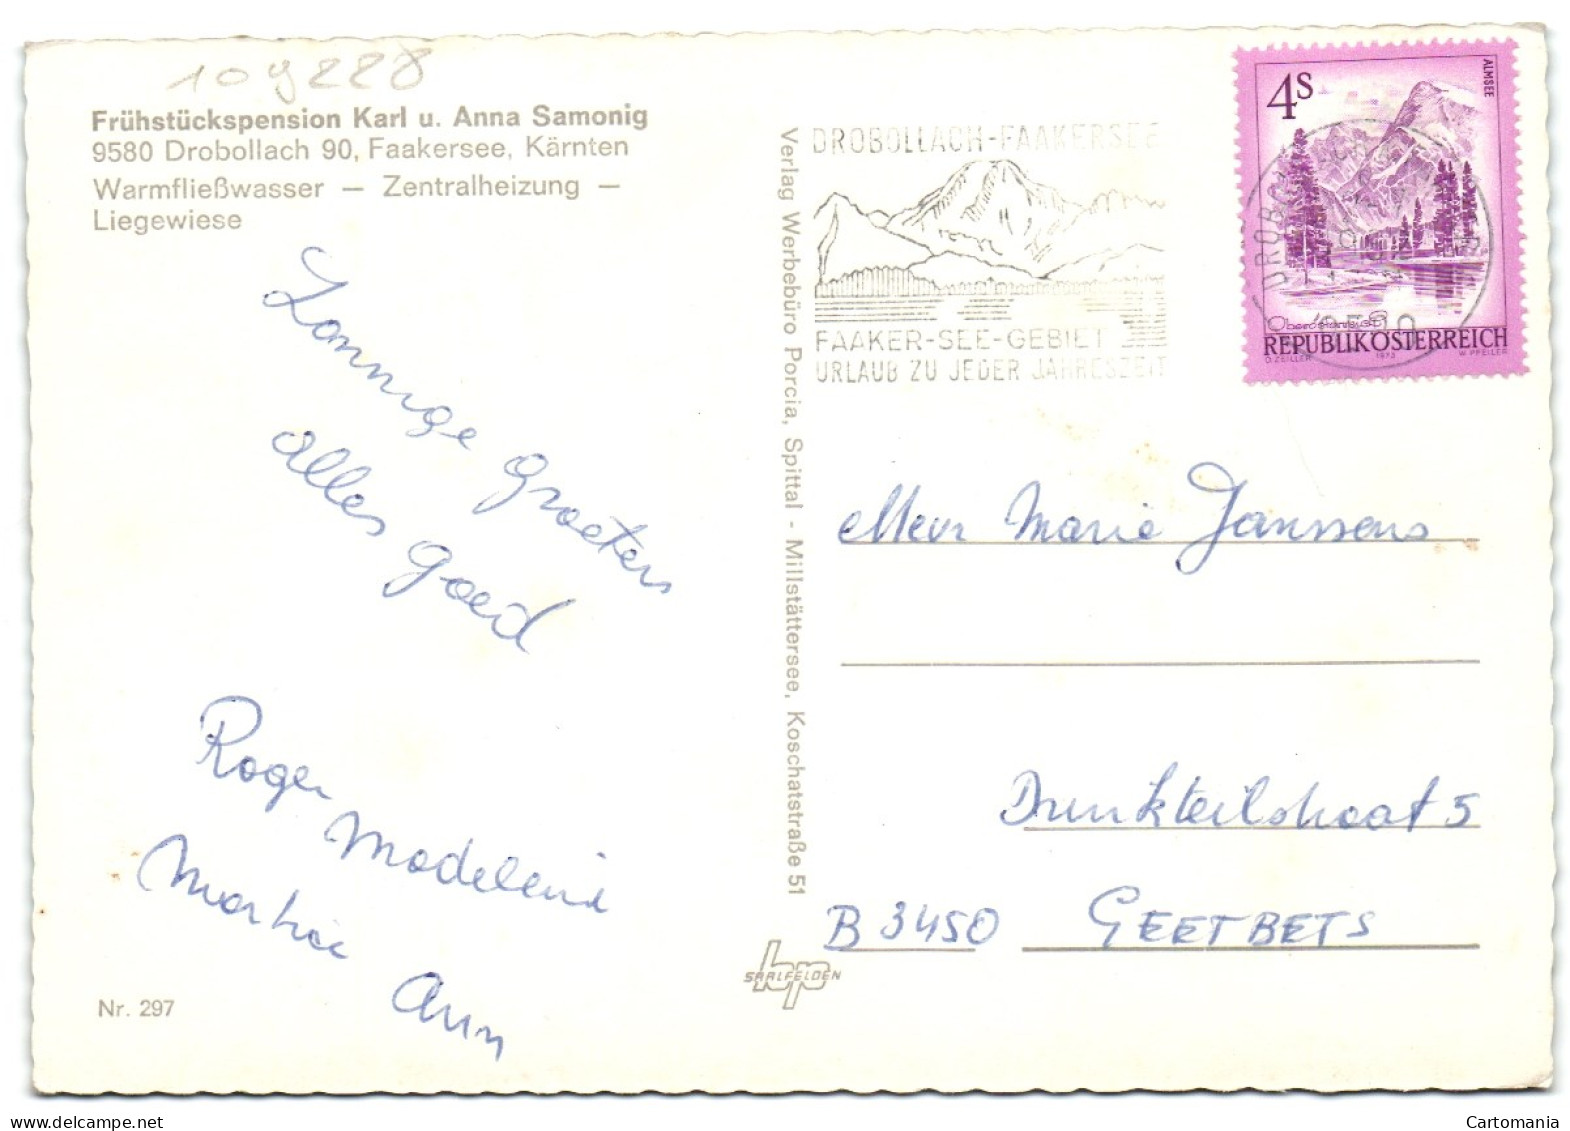 109228
Frühstückspension Karl u. Anna Samonig
9580 Drobollach 90, Faakersee, Kärnten
Warmfließwasser — Zentralheizung —
Liegewiese
Zonnige Groeten
alles goed
Roger Madeleine
Martine
Ann
Nr. 297
Verlag Werbebüro Porcia, Spittal - Millstättersee, Koschatstraße 51
SAALFELDEN
DROBOLLACH-FAAKERSEE
FAAKER-SEE-GEBIET
URLAUB ZU JEDER JAHRESZEIT
4S
ALMSEE
Oberösterreich
REPUBLIK ÖSTERREICH
O. ZEILLER 1973 W. PFEILER
9580
Mevr Marie Janssens
Drinkteilstraat 5
B 3450 GEETBETS
Cartomania